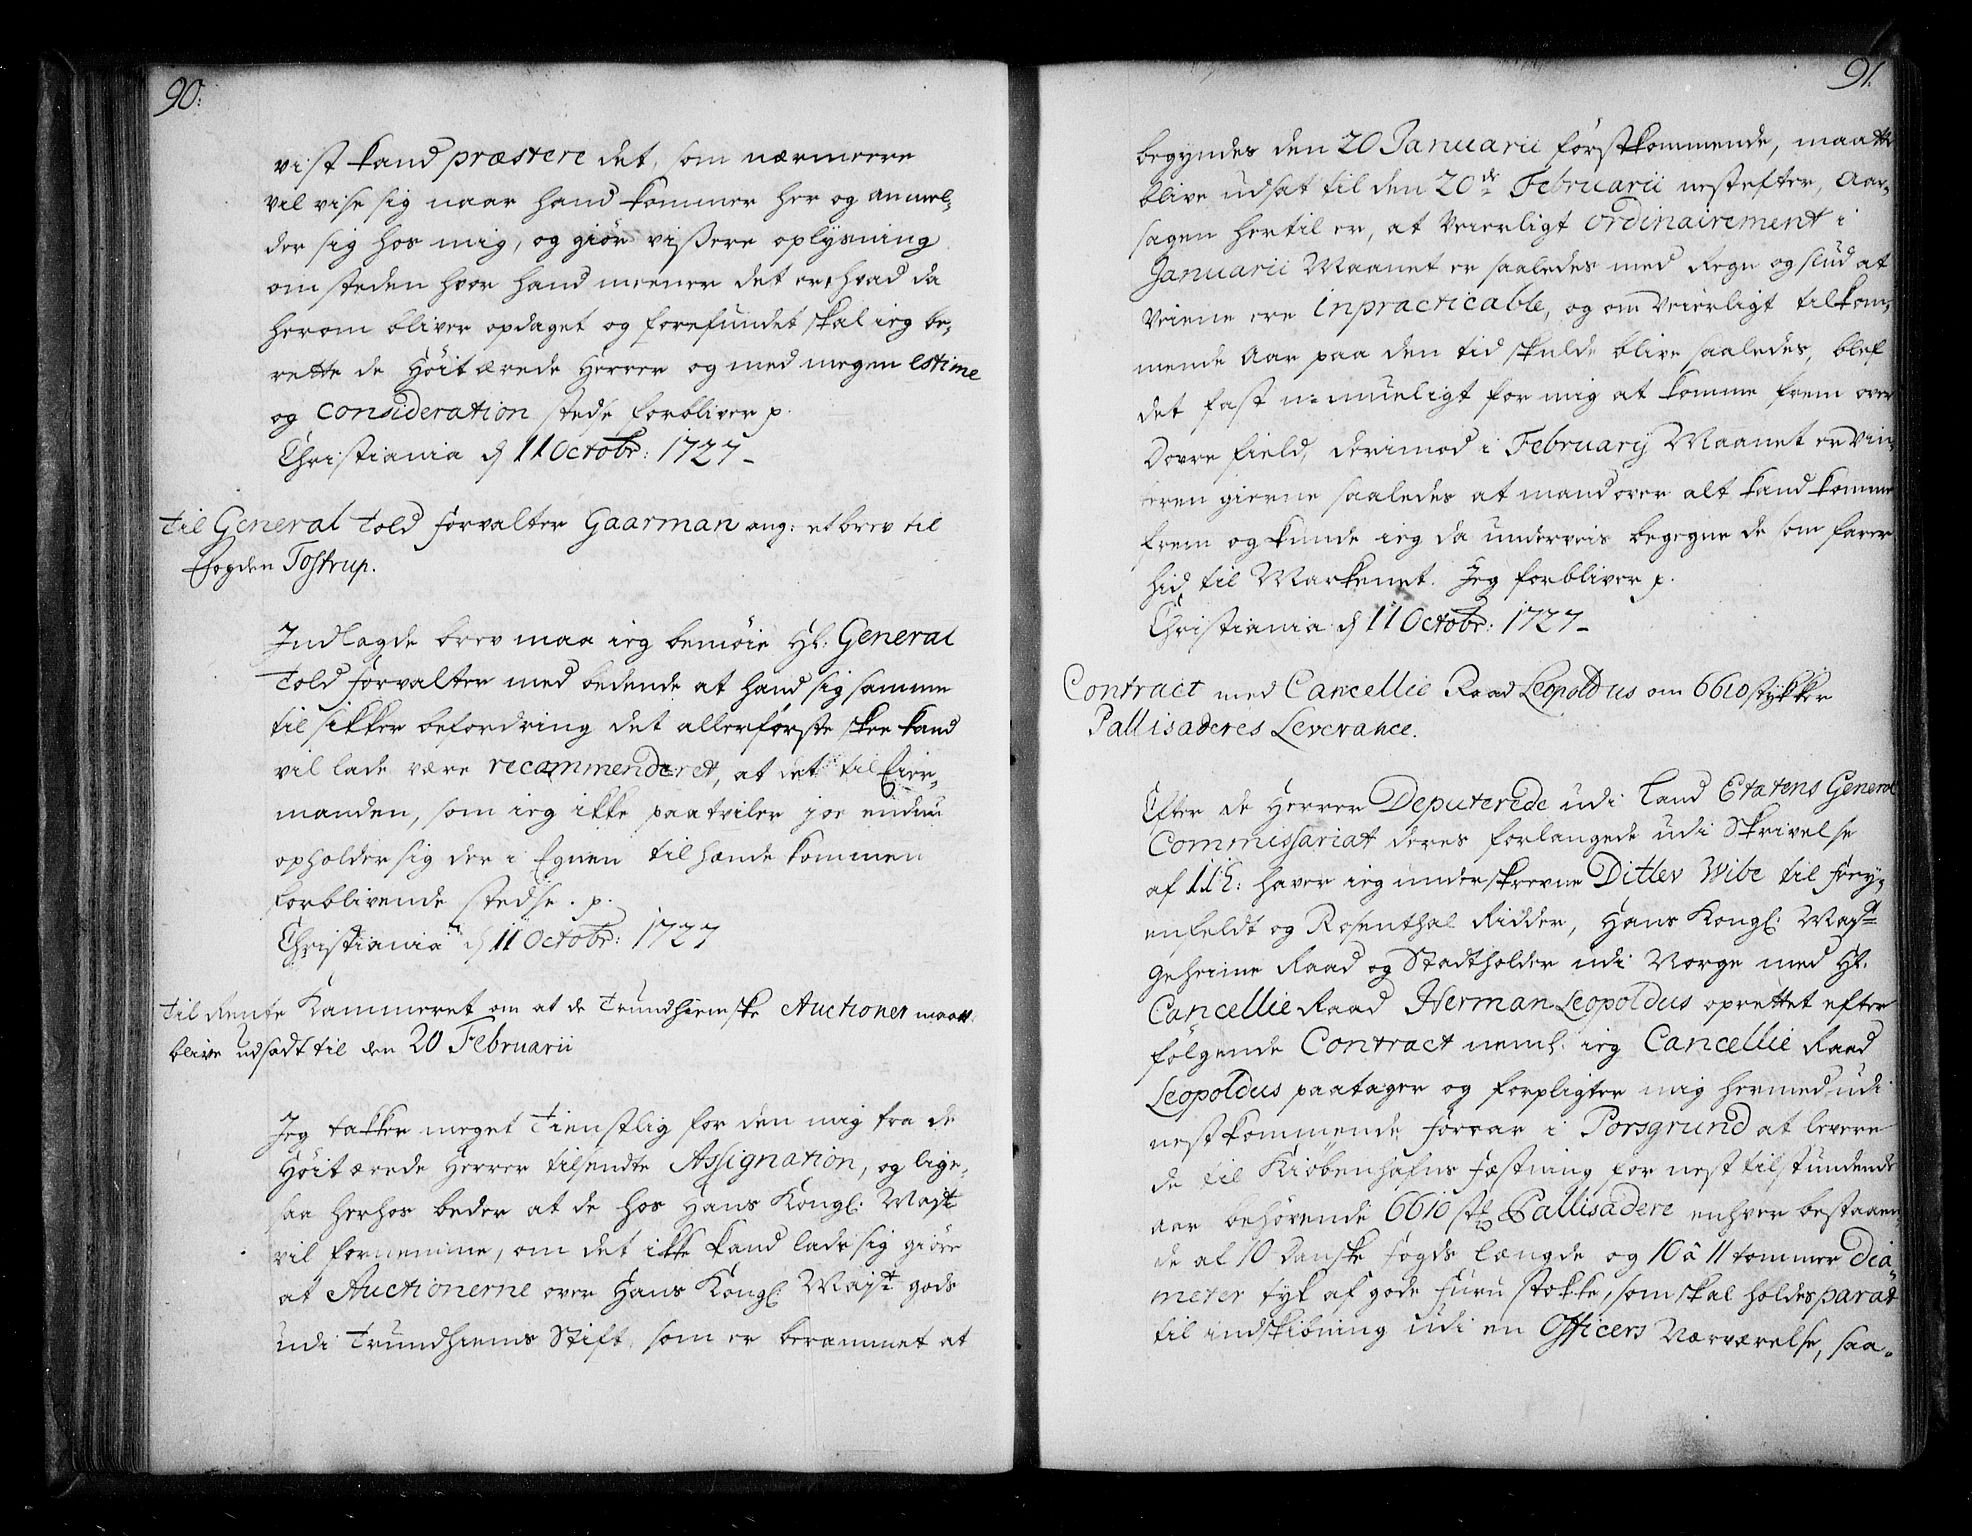 90.
vist kand præstere det, som nærmere
vil vise sig naar hand kommer her og anmel-
der sig hos mig, og giør vissere oplysning
om steden hvor hand meener det er, hvad da
herom bliver opdaget og forefundet skal ieg be-
rette de Höitærede Herrer og med megen estime
og consideration stedse forbliver p.
Christiania d 11 Octobr: 1727-
Til General Told forvalter Gaarman ang: et brev til
fogden Tostrup.
Indlagde brev maa ieg bemøie Hr: General
Told forvalter med bedende at hand sig samme
til sikker befordring det allerførste skee kand
vil lade være recommenderet, at det til Eier-
manden, som ieg ikke paatviler joe endnu
opholder sig der i Egnen til hænde kommen
forblivende stedse. p.
Christiania d 11 Octobr: 1727
Til Rente Kammeret om at de Trundhiemske Auctioner maatt.
blive udsadt til den 20 Februarii
Jeg takker meget Tienstlig for den mig fra de
Höitærede Herrer tilsendte Assignation, og lige-
saa herhos beder at de hos Hans Kongl: Mayt
vil fornemme, om det ikke kand lade sig giøre
at Auctionerne over Hans Kongl: Mayt gods
udi Trundhiems Stift, som er berammet at
91.
begyndes den 20 Januarii förstkommende, maatte
blive udsat til den 20de Februarii nestefter, Aar-
sagen hertil er, at Veierligt ordinairement i
Januarii Maanet er saaledes med Regn og slud at
Veiene ere inpracticable, og om Veierligt tilkom-
mende Aar paa den tid skulde blive saaledes, blef
det fast umueligt for mig at komme frem over
Dovre field, derimod i Februarij Maanet er Vin-
teren gierne saaledes at mand over alt kand komme
frem og kunde ieg da underveis begegne de som farer
hid til Markenet. Jeg forbliver p.
Christiania d 11 Octobr: 1727-
Contract med Cancellie Raad Leopoldus om 6610 stykker
Pallisaderes Leverance.
Efter de Herrer Deputerede udi Land Etatens General
Commissariat deres forlangede udi Skrivelse
af haver ieg underskrevne Ditlev Wibe til Frey-
enfeldt og Rosenthal Ridder, Hans Kongl: Mayts
Geheime Raad og Stadtholder udi Norge med Hr.
Cancellie Raad Herman Leopoldus oprettet efter
følgende Contract neml: ieg Cancellie Raad
Leopoldus paatager og forpligter mig hermed udi
nestkommende foraar i Porsgrund at levere
de til Kiöbenhafns fæstning for nest tilstundende
aar behörende 6610 stk Pallisadere enhver bestaaen
de af 10 Danske fods længde og 10 à 11 tommer Dia-
meter tyk af gode furu stokke, som skal holdes parat
til indskibning udi en Officers Nærværelse, saa-